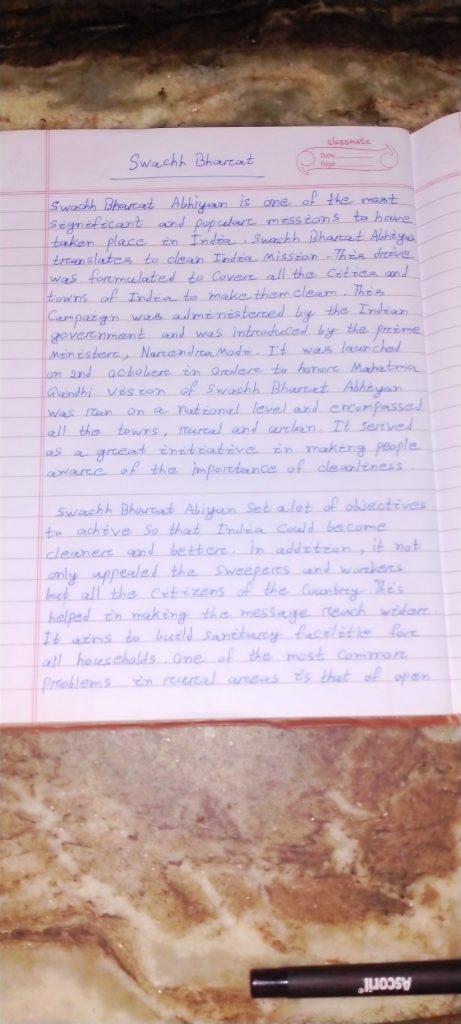 classmate
Date
Page
Swachh Bharat
Swachh Bharat Abhiyan is one of the most
significant and popular missions to have
taken place in India. Swachh Bharat Abhiya
translates to clean India Mission. This drive
was formulated to Cover all the Cities and
towns of India to make them clean. This
Campaign was administered by the Indian
government and was introduced by the prime
Minister, Narendra Modi. It was launched
on 2nd october in order to honor Mahatma
Gandhi Vision of Swachh Bharat Abhiyan
was ran on a national level and encompassed
all the towns, rural and urban. It served
as a great initiative in making people
aware of the importance of cleanliness.
Swachh Bharat Abiyan Set a lot of objectives
to achive So that India Could become
cleaner and better. In addition, it not
only appealed the Sweepers and workers
but all the Citizens of the Country. This
helped in making the message reach wider.
It aims to build Sanitary facilitie for
all households. One of the most Common
Problems in rural areas is that of open
Ascoril